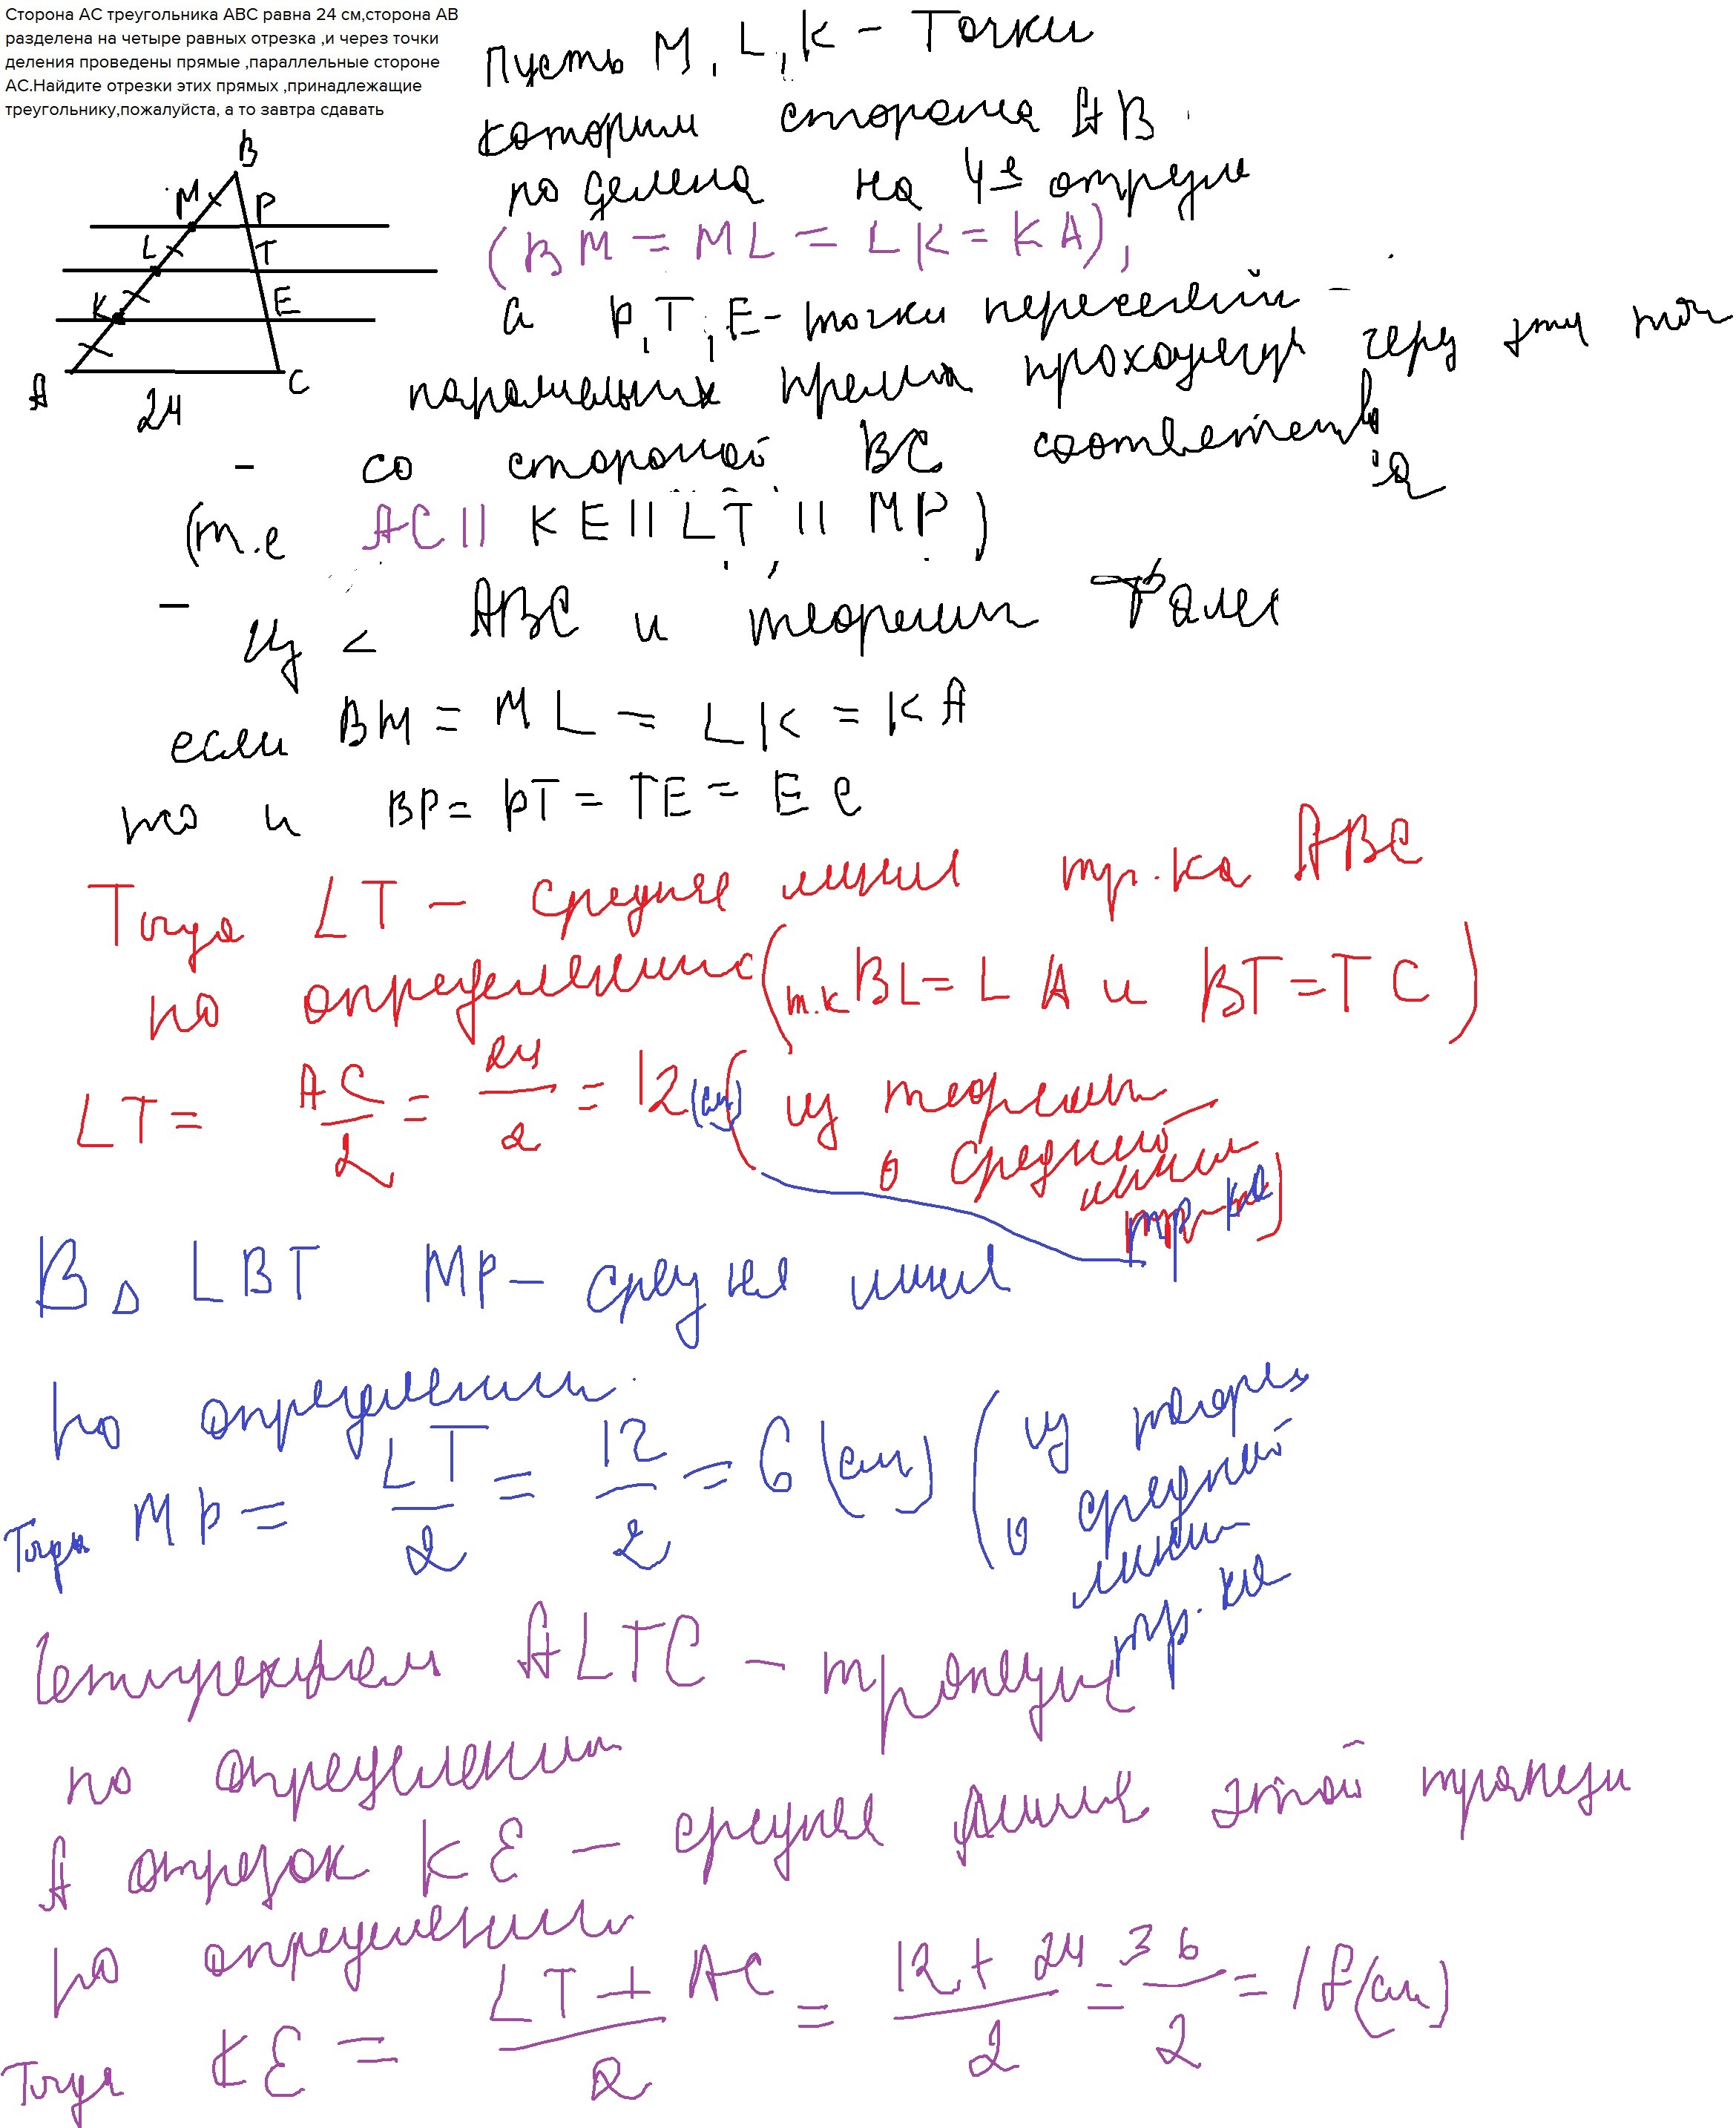 Сторона АС треугольника АВС равна 24 см,сторона АВ
разделена на четыре равных отрезка ,и через точки
деления проведены прямые ,параллельные стороне
АС.Найдите отрезки этих прямых ,принадлежащие
треугольнику,пожалуйста, а то завтра сдавать
B
M P
L T
K E
A C
24
Пусть M, L, K - Точки
которым сторона AB
поделена на 4
(BM = ML = LK = KA),
а P, T, E - точки
прямых через эту
со стороной BC
(т.е AC || KE || LT || MP)
Из < ABC и теореми Фалеса
если BM = ML = LK = KA
то и BP = PT = TE = EC
Тогда LT - средняя линия тр.ка ABC
по определению (т.к BL = LA и BT = TC)
LT = AC/2 = 24/2 = 12 (см) (из теореми
о средней
линии
тр-ка)
В △ LBT MP - средня линия
по определению
Тогда MP = LT/2 = 12/2 = 6 (см) (из теореми
о средней
линии
тр.ка
Четырехугольник ALTC - трапеция
по определению
А отрезок KE - средняя линия этой трапеции
по определению
Тогда KE = LT + AC/2 = 12 + 24/2 = 36/2 = 18 (см)